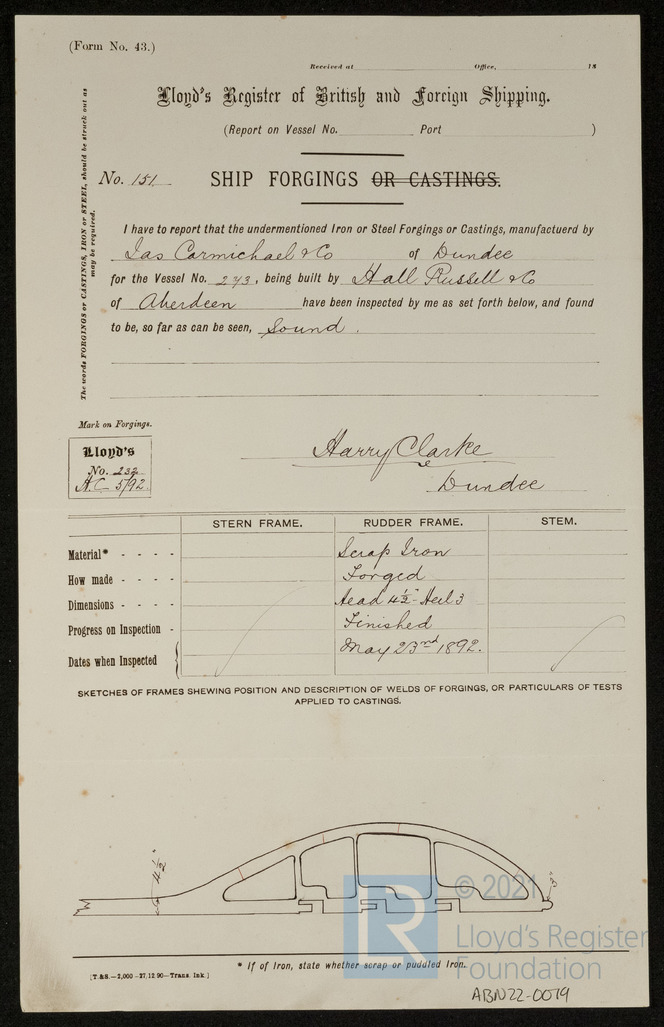 (Form No. 43.)
Received at Office, 18
Lloyd's Register of British and Foreign Shipping.
(Report on Vessel No. Port )
No. 151 SHIP FORGINGS OR CASTINGS.
The words FORGINGS or CASTINGS, IRON or STEEL, should be struck out as
may be required.
I have to report that the undermentioned Iron or Steel Forgings or Castings, manufactuerd by
Jas Carmichael & Co of Dundee
for the Vessel No. 273, being built by Hall Russell & Co
of Aberdeen have been inspected by me as set forth below, and found
to be, so far as can be seen, Sound.
Mark on Forgings.
Lloyd's
No. 232
H.C 5/92
Harry Clarke
Dundee
STERN FRAME. RUDDER FRAME. STEM.
Material* - - - - Scrap Iron
How made - - - - Forged
Dimensions - - - - Head 4½" Heel 3
Progress on Inspection - Finished
Dates when Inspected May 23rd 1892.
SKETCHES OF FRAMES SHEWING POSITION AND DESCRIPTION OF WELDS OF FORGINGS, OR PARTICULARS OF TESTS
APPLIED TO CASTINGS.
4½"
3"
© 2021
LR
Lloyd's Register
Foundation
* If of Iron, state whether scrap or puddled Iron.
[T.&S.—2,000 –27,12 90—Trans. Ink.]
ABN22-0079